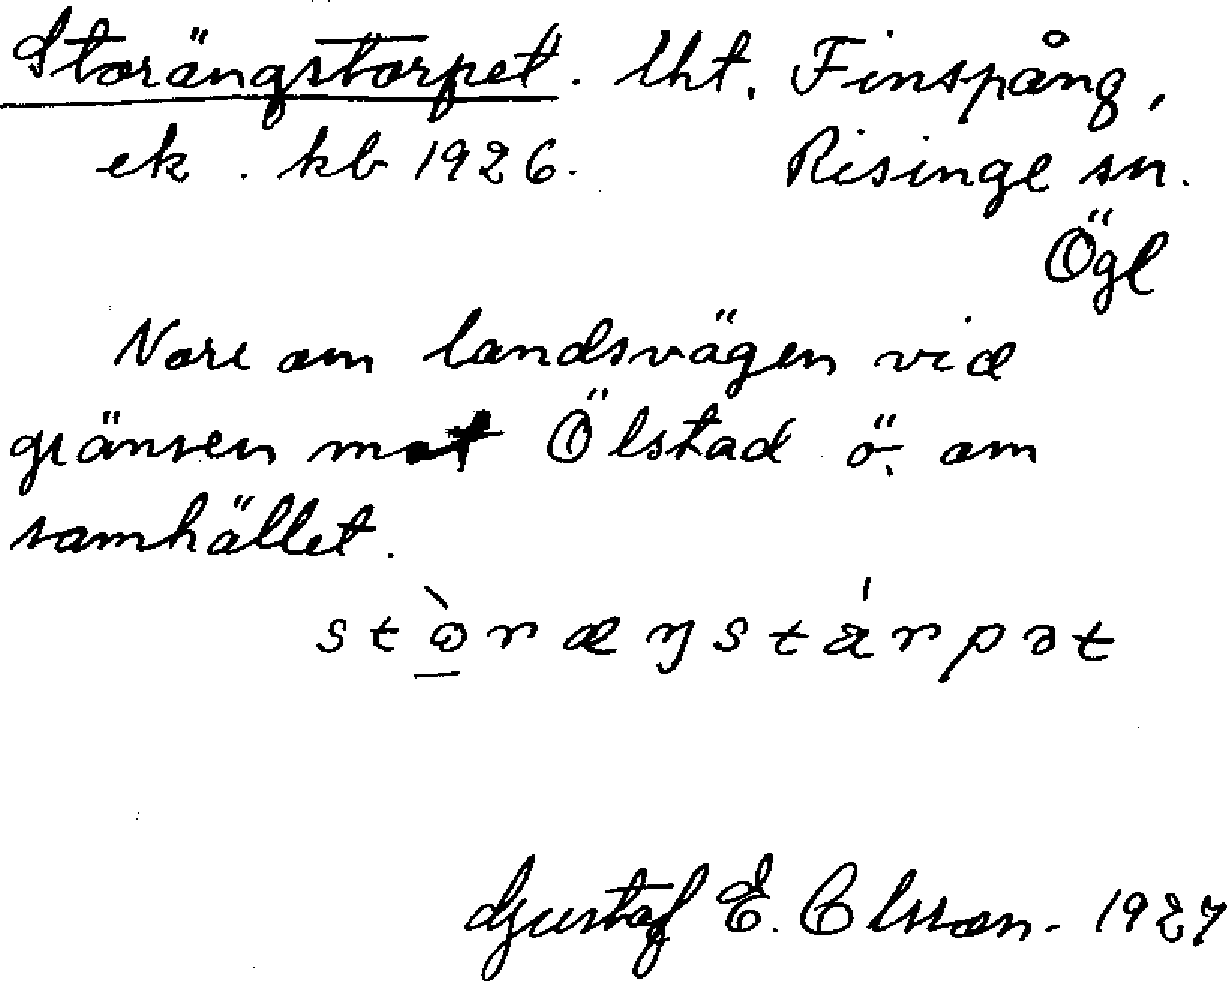 Storängstorpet. lht. Finspång,
ek. kb 1926. Risinge sn.
Ögl
Norr om landsvägen vid
gränsen mot Ölstad ö. om
samhället.
stò̠ræŋstárpət
Gustaf E. Olsson. 1927